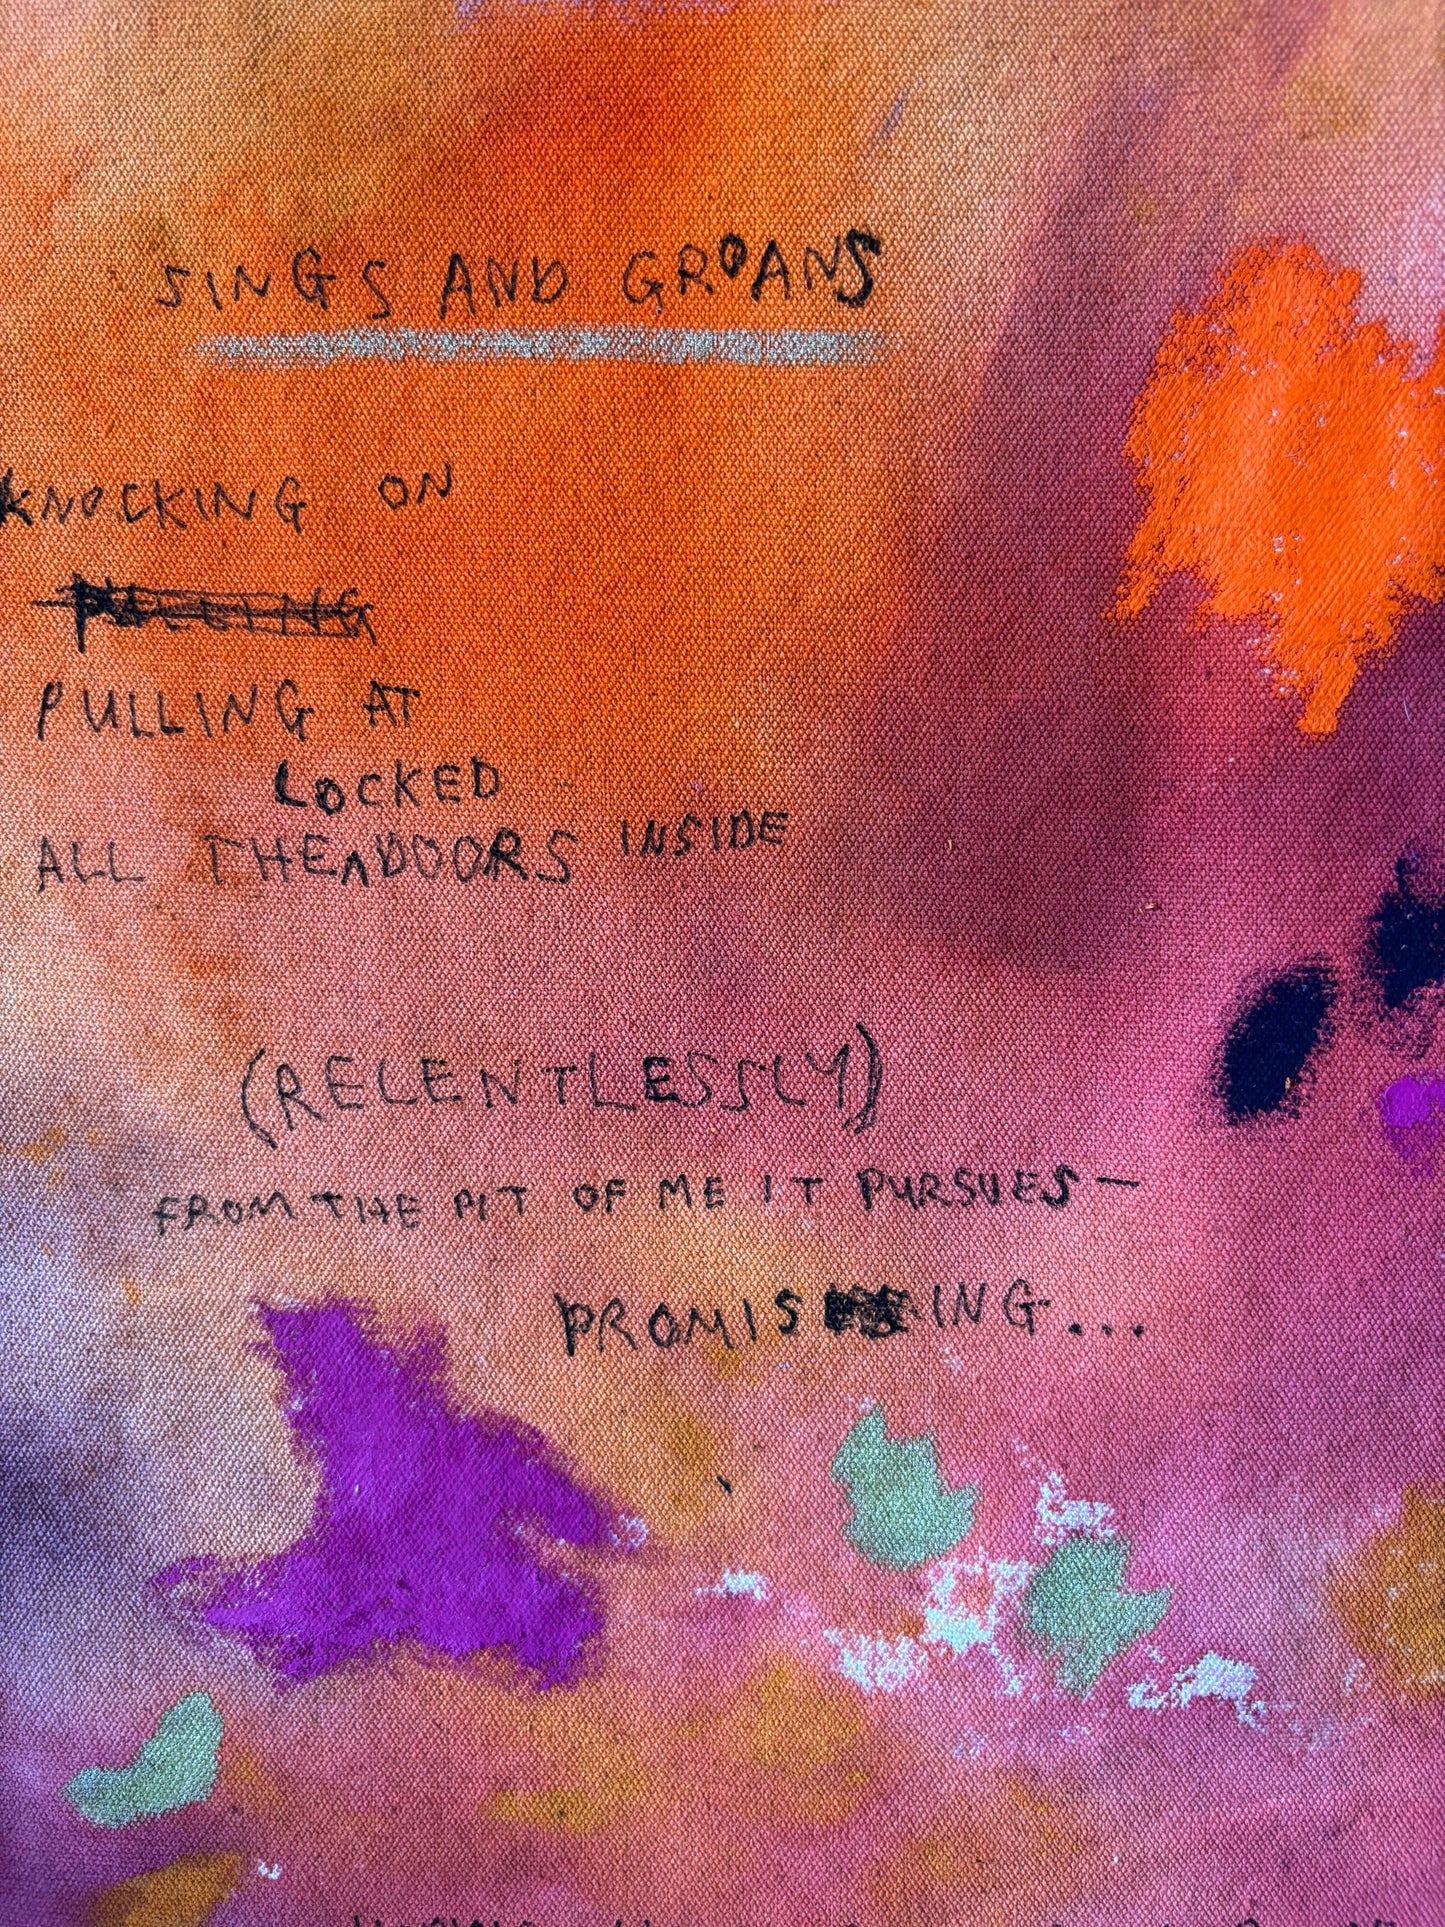 SINGS AND GROANS
KNOCKING ON
PULLING AT
LOCKED
ALL THE DOORS INSIDE
(RELENTLESSLY)
FROM THE PIT OF ME IT PURSUES—
PROMISING...